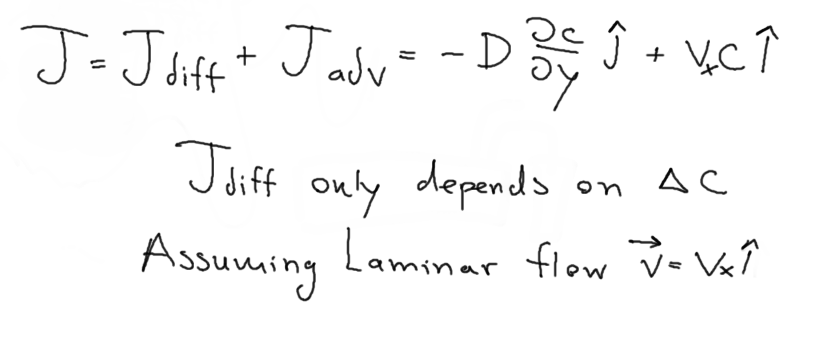 J = J diff + J adv = - D ∂c/∂y ĵ + VxC î
J diff only depends on ΔC
Assuming Laminar flow v⃗ = Vx î